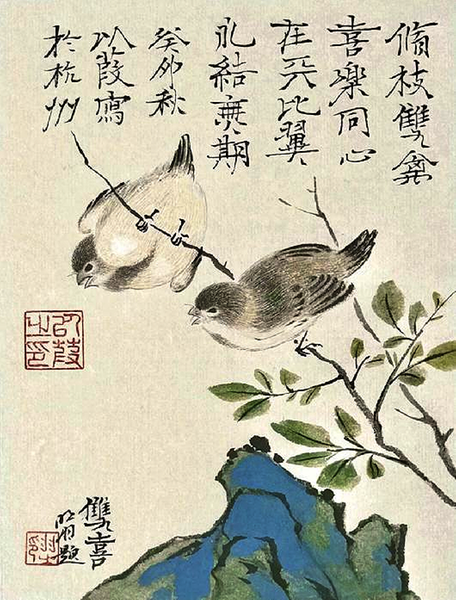 脩枝雙禽
喜樂同心
在天比翼
永結無期
癸卯秋
以葭寫
於杭州
以葭
之印
雙喜